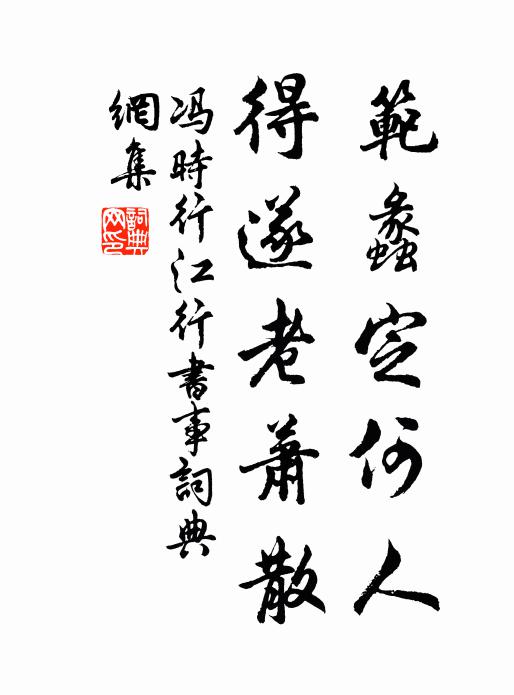 範蠡定何人
得遂老蕭散
冯時行江行書事詞典
網集
詞典網印